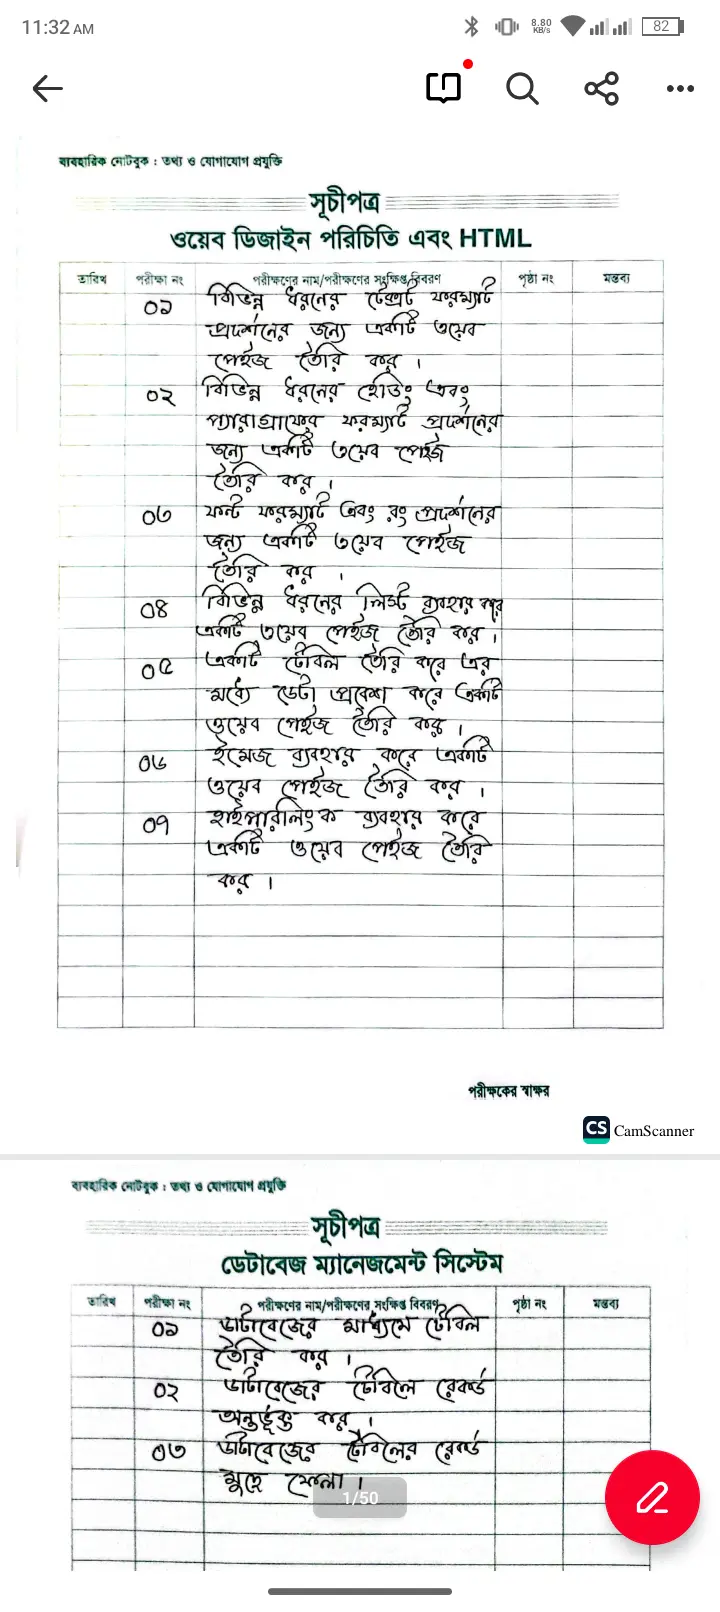 11:32 AM
8.80
KB/s
82
ব্যবহারিক নোটবুক : তথ্য ও যোগাযোগ প্রযুক্তি
সূচীপত্র
ওয়েব ডিজাইন পরিচিতি এবং HTML
তারিখ পরীক্ষা নং পরীক্ষণের নাম/পরীক্ষণের সংক্ষিপ্ত বিবরণ পৃষ্ঠা নং মন্তব্য
০১ বিভিন্ন ধরনের টেক্সট ফরম্যাট
প্রদর্শনের জন্য একটি ওয়েব
পেইজ তৈরি কর ।
০২ বিভিন্ন ধরনের হেডিং এবং
প্যারাগ্রাফের ফরম্যাট প্রদর্শনের
জন্য একটি ওয়েব পেইজ
তৈরি কর ।
০৩ ফন্ট ফরম্যাট এবং রং প্রদর্শনের
জন্য একটি ওয়েব পেইজ
তৈরি কর ।
০৪ বিভিন্ন ধরনের লিস্ট ব্যবহার করে
একটি ওয়েব পেইজ তৈরি কর ।
০৫ একটি টেবিল তৈরি করে এর
মধ্যে ডেটা প্রবেশ করে একটি
ওয়েব পেইজ তৈরি কর ।
০৬ ইমেজ ব্যবহার করে একটি
ওয়েব পেইজ তৈরি কর ।
০৭ হাইপারলিংক ব্যবহার করে
একটি ওয়েব পেইজ তৈরি
কর ।
পরীক্ষকের স্বাক্ষর
CS CamScanner
ব্যবহারিক নোটবুক : তথ্য ও যোগাযোগ প্রযুক্তি
সূচীপত্র
ডেটাবেজ ম্যানেজমেন্ট সিস্টেম
তারিখ পরীক্ষা নং পরীক্ষণের নাম/পরীক্ষণের সংক্ষিপ্ত বিবরণ পৃষ্ঠা নং মন্তব্য
০১ ডাটাবেজের মাধ্যমে টেবিল
তৈরি কর ।
০২ ডাটাবেজের টেবিলে রেকর্ড
অন্তর্ভূক্ত কর ।
০৩ ডাটাবেজের টেবিলের রেকর্ড
মুছে ফেলা ।
1/50